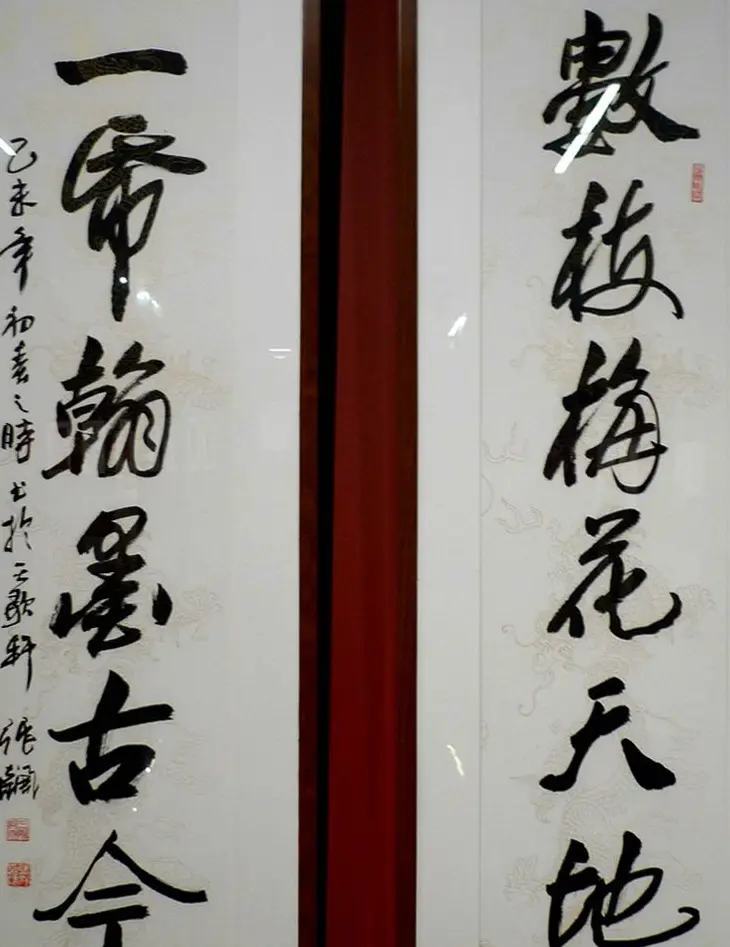 數枝梅花天地
一翰墨古今
乙未年初春之時书於歌軒 張飆